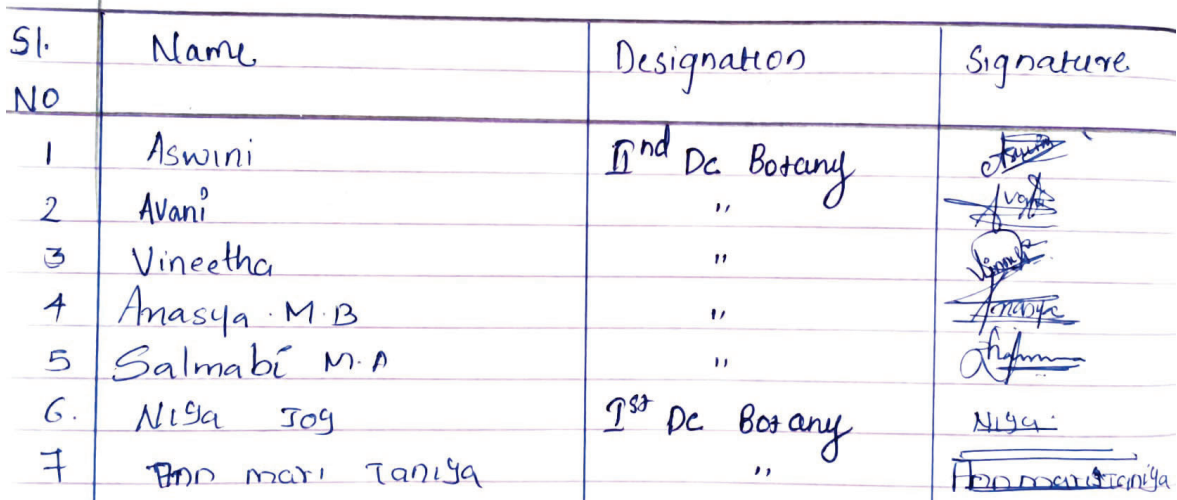 Sl. Name Designation Signature
NO
1 Aswini IInd Dc Botany Aswini
2 Avani " Avani
3 Vineetha "
4 Anasya . M. B " Anasya
5 Salmabi M. A "
6. Niya Joy Ist Dc Botany Niya
7 Ann mari Taniya " Ann mari Taniya